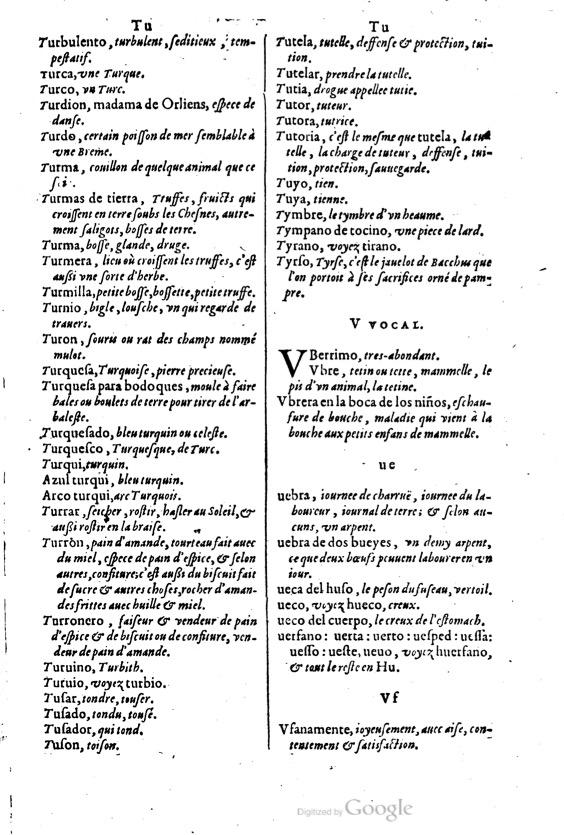 Tu
Turbulento, turbulent, ſeditieux, tem-
peſtatif.
Turca, vne Turque.
Turco, vn Turc.
Turdion, madama de Orliens, eſpece de
danſe.
Turdo, certain poiſſon de mer ſemblable à
vne Breme.
Turma, couillon de quelque animal que ce
ſoi.
Turmas de tierra, Truffes, fruicts qui
croiſſent en terre ſoubs les Cheſnes, autre-
ment ſaligots, boſſes de terre.
Turma, boſſe, glande, druge.
Turmera, lieu où croiſſent les truffes, c'eſt
auſſi vne ſorte d'herbe.
Turmilla, petite boſſe, boſſette, petite truffe.
Turnio, bigle, louſche, vn qui regarde de
trauers.
Turon, ſouris ou rat des champs nommé
mulot.
Turqueſa, Turquoiſe, pierre precieuſe.
Turqueſa para bodoques, moule à faire
bales ou boulets de terre pour tirer de l'ar-
baleſte.
Turqueſado, bleu turquin ou celeſte.
Turqueſco, Turqueſque, de Turc.
Turqui, turquin.
Azul turqui, bleu turquin.
Arco turqui, arc Turquois.
Turrar, ſeicher, roſtir, haſler au Soleil, &
auſſi roſtir en la braiſe.
Turròn, pain d'amande, tourteau fait auec
du miel, eſpece de pain d'eſpice, & ſelon
autres, confiture; c'eſt auſſi du biſcuit fait
de ſucre & autres choſes, rocher d'aman-
des frittes auec huille & miel.
Turronero, faiſeur & vendeur de pain
d'eſpice & de biſcuit ou de confiture, ven-
deur de pain d'amande.
Turuino, Turbith.
Turuio, voyez turbio.
Tuſar, tondre, touſer.
Tuſado, tondu, touſé.
Tuſador, qui tond.
Tuſon, toiſon.
Tu
Tutela, tutelle, deffenſe & protection, tui-
tion.
Tutelar, prendre la tutelle.
Tutia, drogue appellee tutie.
Tutor, tuteur.
Tutora, tutrice.
Tutoria, c'eſt le meſme que tutela, la tu-
telle, la charge de tuteur, deffenſe, tui-
tion, protection, ſauuegarde.
Tuyo, tien.
Tuya, tienne.
Tymbre, le tymbre d'vn heaume.
Tympano de tocino, vne piece de lard.
Tyrano, voyez tirano.
Tyrſo, Tyrſe, c'eſt le jauelot de Bacchus que
l'on portoit à ſes ſacrifices orné de pam-
pre.
V VOCAL.
VBerrimo, tres-abondant.
Vbre, tetin ou tette, mammelle, le
pis d'vn animal, la tetine.
Vbrera en la boca de los niños, eſchau-
fure de bouche, maladie qui vient à la
bouche aux petits enfans de mammelle.
ue
uebra, iournee de charruë, iournee du la-
boureur, iournal de terre; & ſelon au-
cuns, vn arpent.
uebra de dos bueyes, vn demy arpent,
ce que deux bœufs peuuent labourer en vn
iour.
ueca del huſo, le peſon du fuſeau, vertoil.
ueco, voyez hueco, creux.
ueco del cuerpo, le creux de l'eſtomach.
uerfano: uerta: uerto: ueſped: ueſſa:
ueſſo: ueſte, ueuo, voyez huerfano,
& tout le reſte en Hu.
Vf
Vfanamente, ioyeuſement, auec aiſe, con-
tentement & ſatisfaction.
Digitized by Google